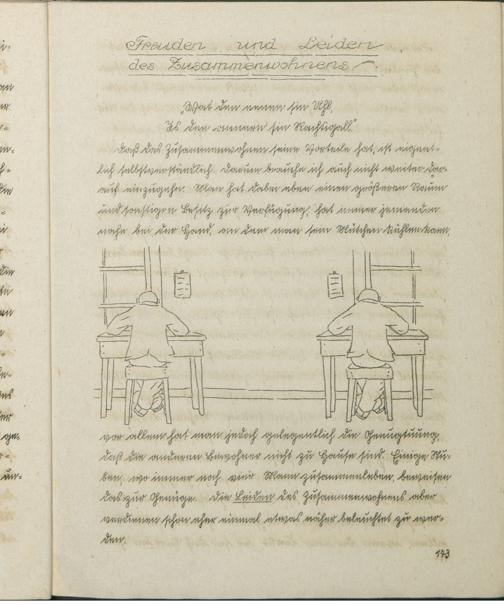 Freuden und Leiden
des Zusammenwohnens.
„Wat den eenen sin Uhl,
Is den annern sin Nachtigall.“
Daß das Zusammenwohnen seine Vorteile hat, ist eigent-
lich selbstverständlich. Darum brauche ich auch nicht weiter dar-
auf einzugehn. Man hat dabei eben einen größeren Raum
und sonstigen Besitz zur Verfügung, hat immer jemanden
nahe bei der Hand, an dem man sein Mütchen kühlen kann,
vor allem hat man jedoch gelegentlich die Genugtuung,
daß die anderen Bewohner nicht zu Hause sind. Einige Stu-
ben, wo immer noch vier Mann zusammenleben, beweisen
das zur Genüge. Die Leiden des Zusammenwohnens aber
verdienen schon eher einmal etwas näher beleuchtet zu wer-
den.
143